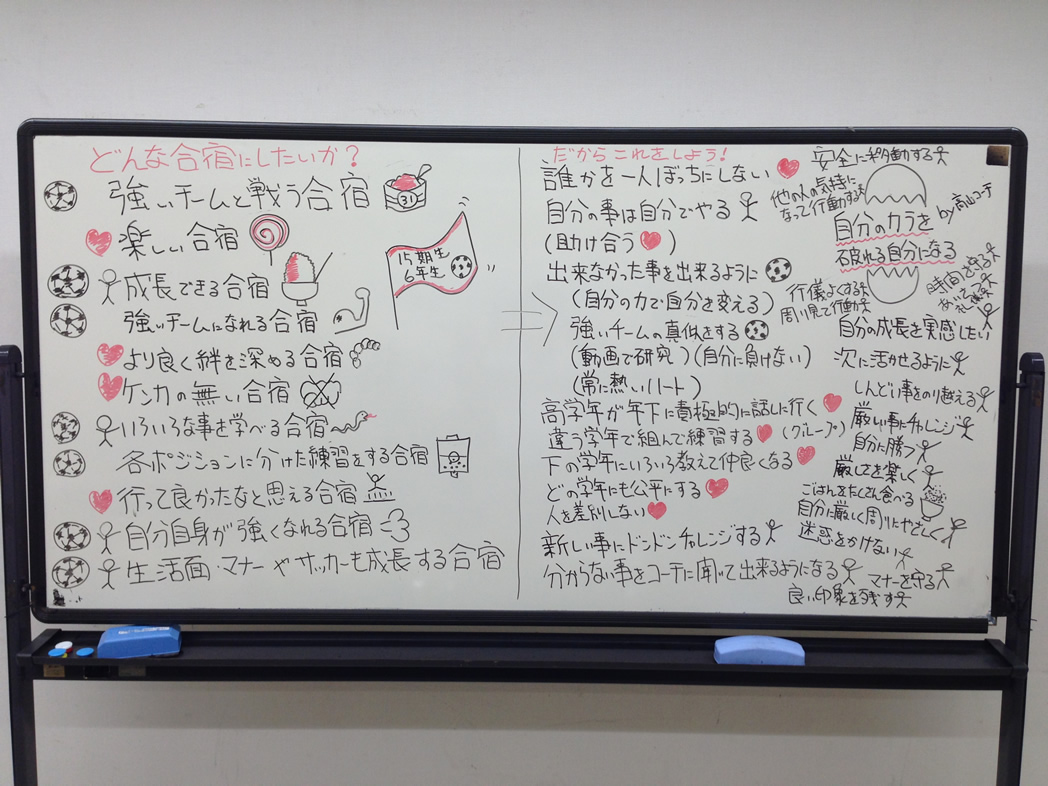 どんな合宿にしたいか?
強いチームと戦う合宿
31
楽しい合宿
成長できる合宿
15期生
6年生
強いチームになれる合宿
より良く絆を深める合宿
ケンカの無い合宿
いろいろな事を学べる合宿
各ポジションに分けた練習をする合宿
行って良かったなと思える合宿
自分自身が強くなれる合宿
生活面・マナーやサッカーも成長する合宿
だからこれをしよう!
誰かを一人ぼっちにしない
自分の事は自分でやる
(助け合う)
出来なかった事を出来るように
(自分の力で自分を変える)
強いチームの真似をする
(動画で研究)(自分に負けない)
(常に熱いハート)
高学年が年下に責極的に話し行く
違う学年で組んで練習する(グループ)
下の学年にいろいろ教えて仲良くなる
どの学年にも公平にする
人を差別しない
新しい事にドンドンチャレンジする
分からない事をコーチに聞いて出来るようになる
安全に移動する
他の人の気持に
なって行動する
自分のカラを
by高山コーチ
破れる自分になる
行儀よくする
周り見て行動
時間を守る
あいさつ
礼儀
自分の成長を実感したい
次に活かせるように
しんどい事をのり越える
厳しい事にチャレンジ
自分に勝つ
厳しさを楽しく
ごはんをたくさん食べる
自分に厳しく周りにやさしく
迷惑をかけない
マナーを守る
良い印象を残す